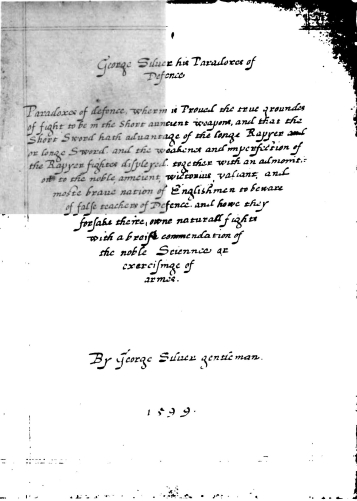 George Silver his Paradoxes of
Defence
Paradoxes of defence, wherin is Proved the true groundes
of fight to be in the short auncient weapons, and that the
Short Sword hath advantage of the longe Rapyer and
or longe Sword. and the weaknes and imperfection of
the Rapyer fightes displayed. together with an admoniti=
on to the noble, ancient, victorius, valiant, and
moste brave nation of Englishmen to beware
of false teachers of Defence. and howe they
forsake theire, owne naturall fights
with a breife commendation of
the noble Sciennce or
exercisinge of
armes.
By George Silver gentleman.
1599.